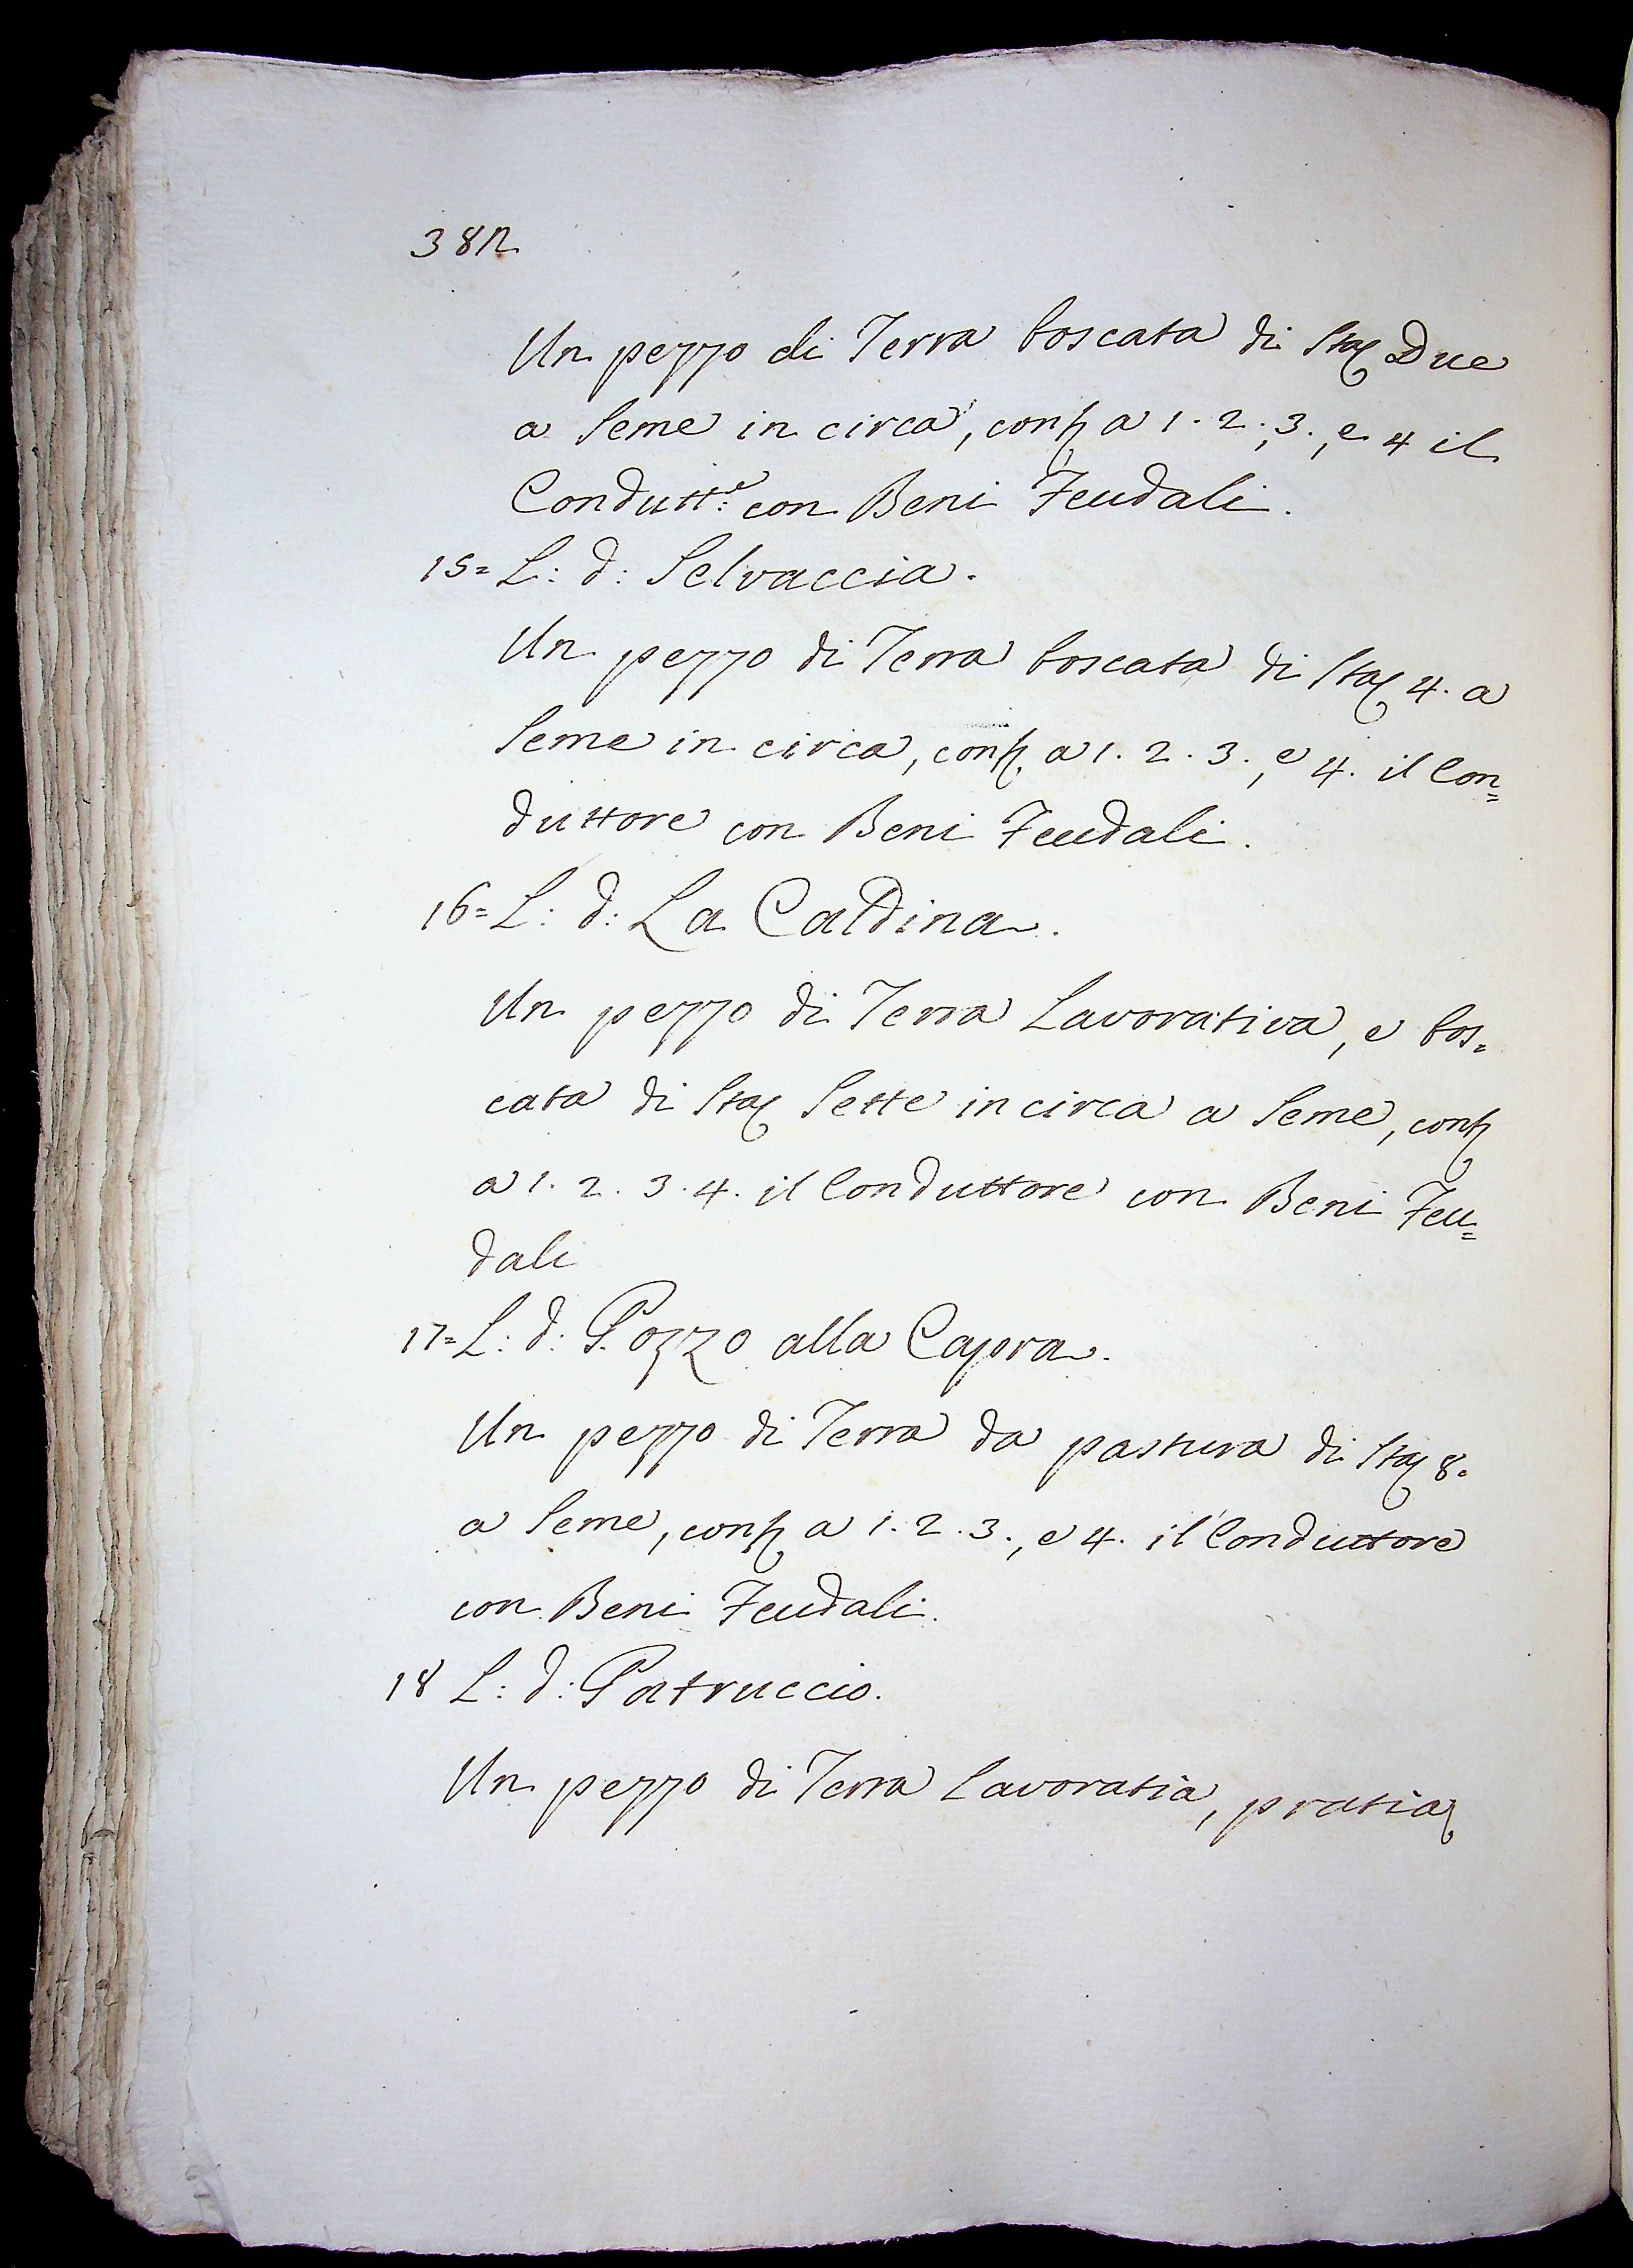 382
Un pezzo di Terra boscata di Sta Due
a Seme in circa, conf. a 1. 2., 3., e 4 il
Condutt.e con Beni Feudali.
15= L: d: Selvaccia.
Un pezzo di Terra boscata di Sta 4. a
Seme in circa, conf. a 1. 2. 3., e 4. il Con=
duttore con Beni Feudali.
16= L: d: La Caldina.
Un pezzo di Terra Lavorativa, e bos=
cata di Sta Sette in circa a Seme, conf
a 1. 2. 3. 4. il Conduttore con Beni Feu=
dali
17= L: d: Pozzo alla Capra.
Un pezzo di Terra da pastura di Sta 8.
a Seme, conf a 1. 2. 3., e 4. il Conduttore
con Beni Feudali.
18 L: d: Patruccio.
Un pezzo di Terra Lavoratia, pratia,